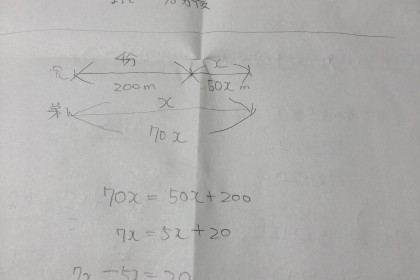 4分 x
兄 200m 50x m
弟 x
70x
70x = 50x + 200
7x = 5x + 20
7x - 5x = 20